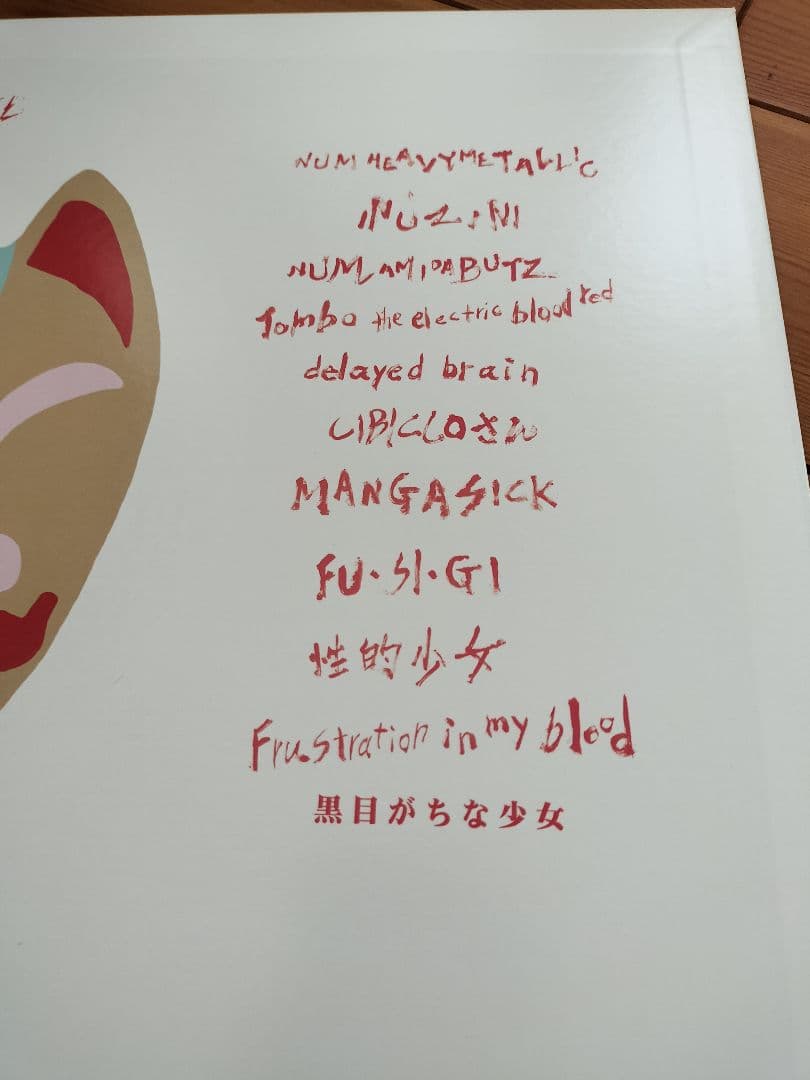 NUM HEAVYMETALLIC
INUZINI
NUM AMIDABUTZ
Tombo the electric blood red
delayed brain
CIBICCOさん
MANGASICK
FU・SI・GI
性的少女
Frustration in my blood
黒目がちな少女